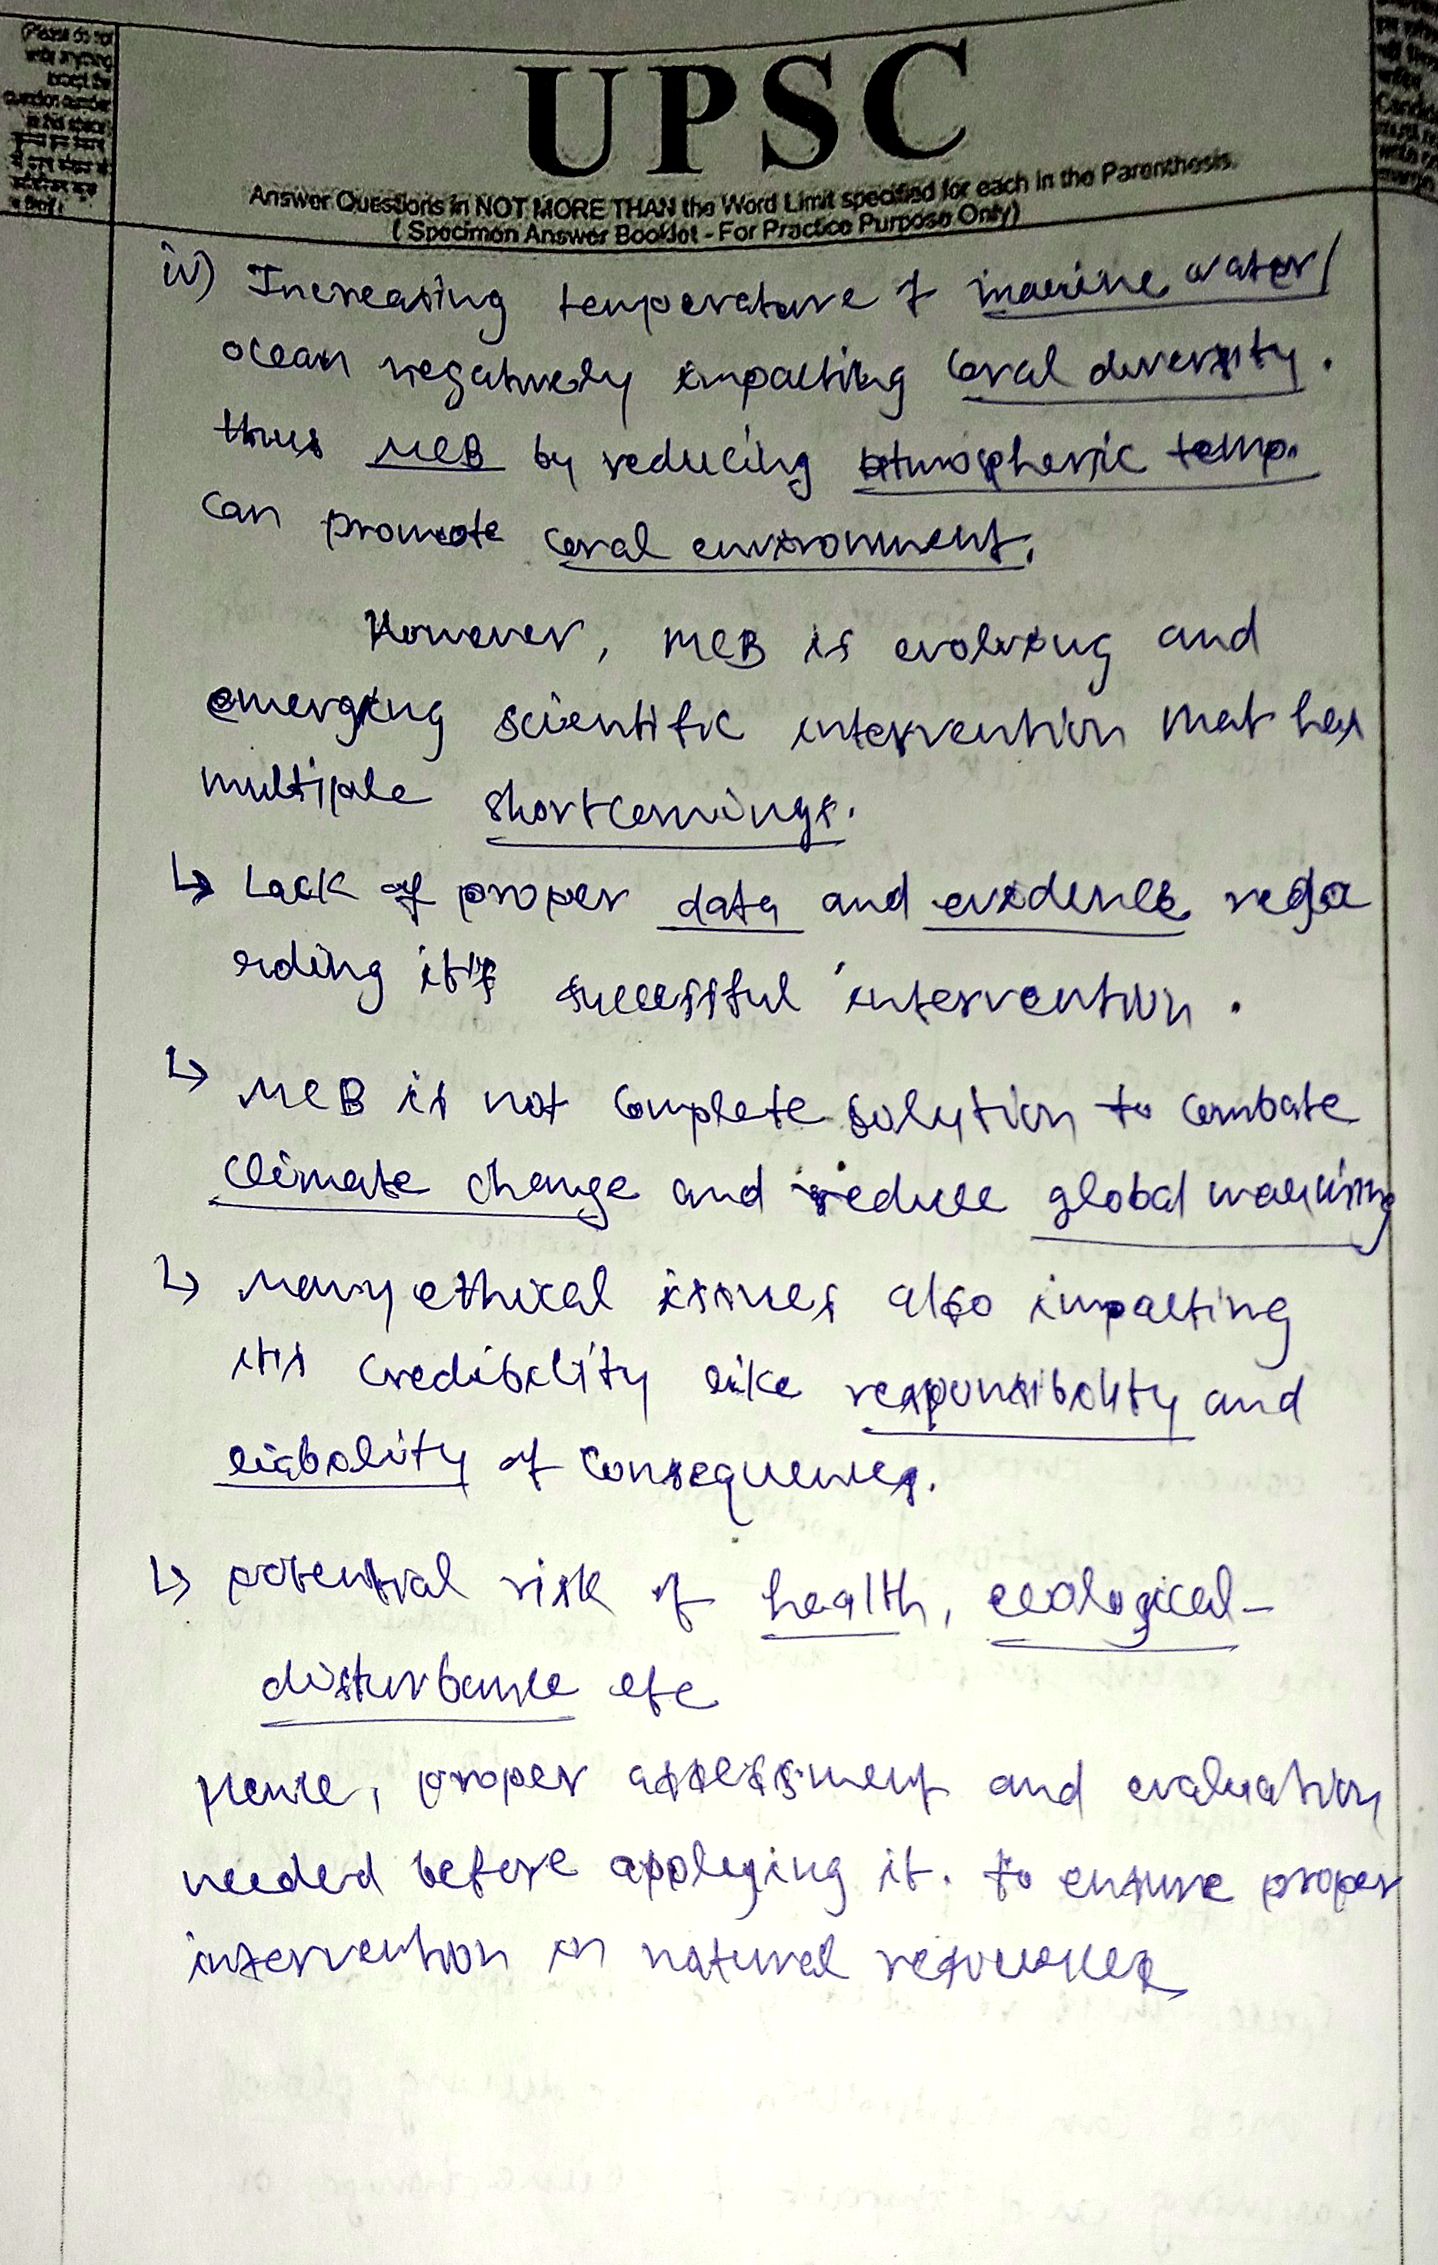 (Please do not
write anything
except the
question number
in this space)
UPSC
Answer Questions in NOT MORE THAN the Word Limit specified for each in the Parenthesis.
( Specimen Answer Booklet - For Practice Purpose Only)
iv) Increasing temperature of marine water/
ocean negatively impacting coral diversity.
thus MCB by reducing atmospheric temp.
can promote coral environment.
However, MCB is evolving and
emerging scientific intervention that has
multiple shortcomings.
↳ Lack of proper data and evidence rega
rding it's successful intervention.
↳ MCB is not complete solution to combate
climate change and reduce global warming
↳ Many ethical issues also impacting
its credibility like responsibility and
liability of consequences.
↳ potential risk of health, ecological-
disturbance etc
Hence, proper assessment and evaluation
needed before applying it. to ensure proper
intervention in natural resources